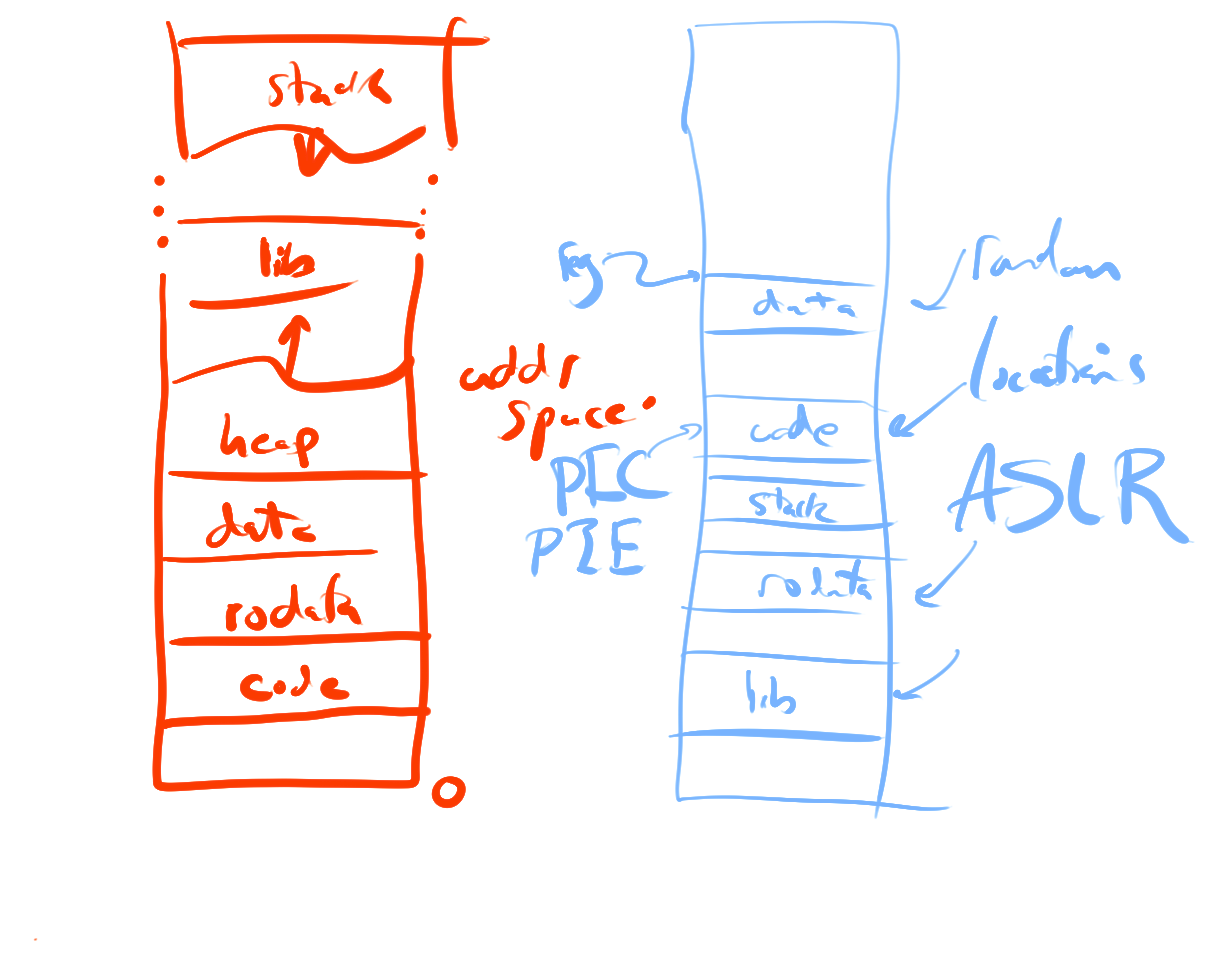 stack
lib
heap
data
rodata
code
0
addr
space
reg
data
code
stack
rodata
lib
PIC
PIE
random
locations
ASLR